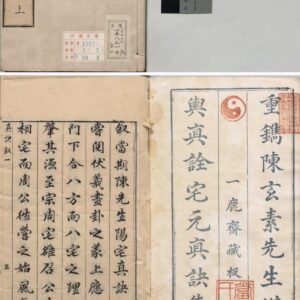 上
重鐫陳玄素先生
一鹿齋藏板
輿真詮宅元真訣
叙當期陳先生陽宅真訣
嘗聞伏羲畫卦之蒙上應
門下合八方而八宅之理
肇其源至宗周宅雒召公
相宅而周公經營之始風
真訣叙一